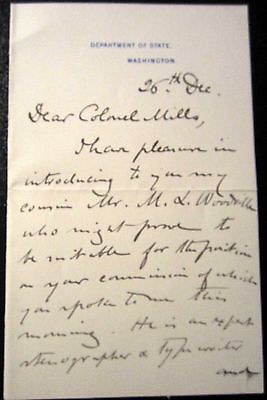 DEPARTMENT OF STATE,
WASHINGTON.
26th Dec.
Dear Colonel Mills,
I have pleasure in
introducing to you my
cousin Mr. M. L. Woodville
who might prove to
be suitable for the position
on your commission of which
you spoke to me this
morning. He is an expert
stenographer & typewriter
and